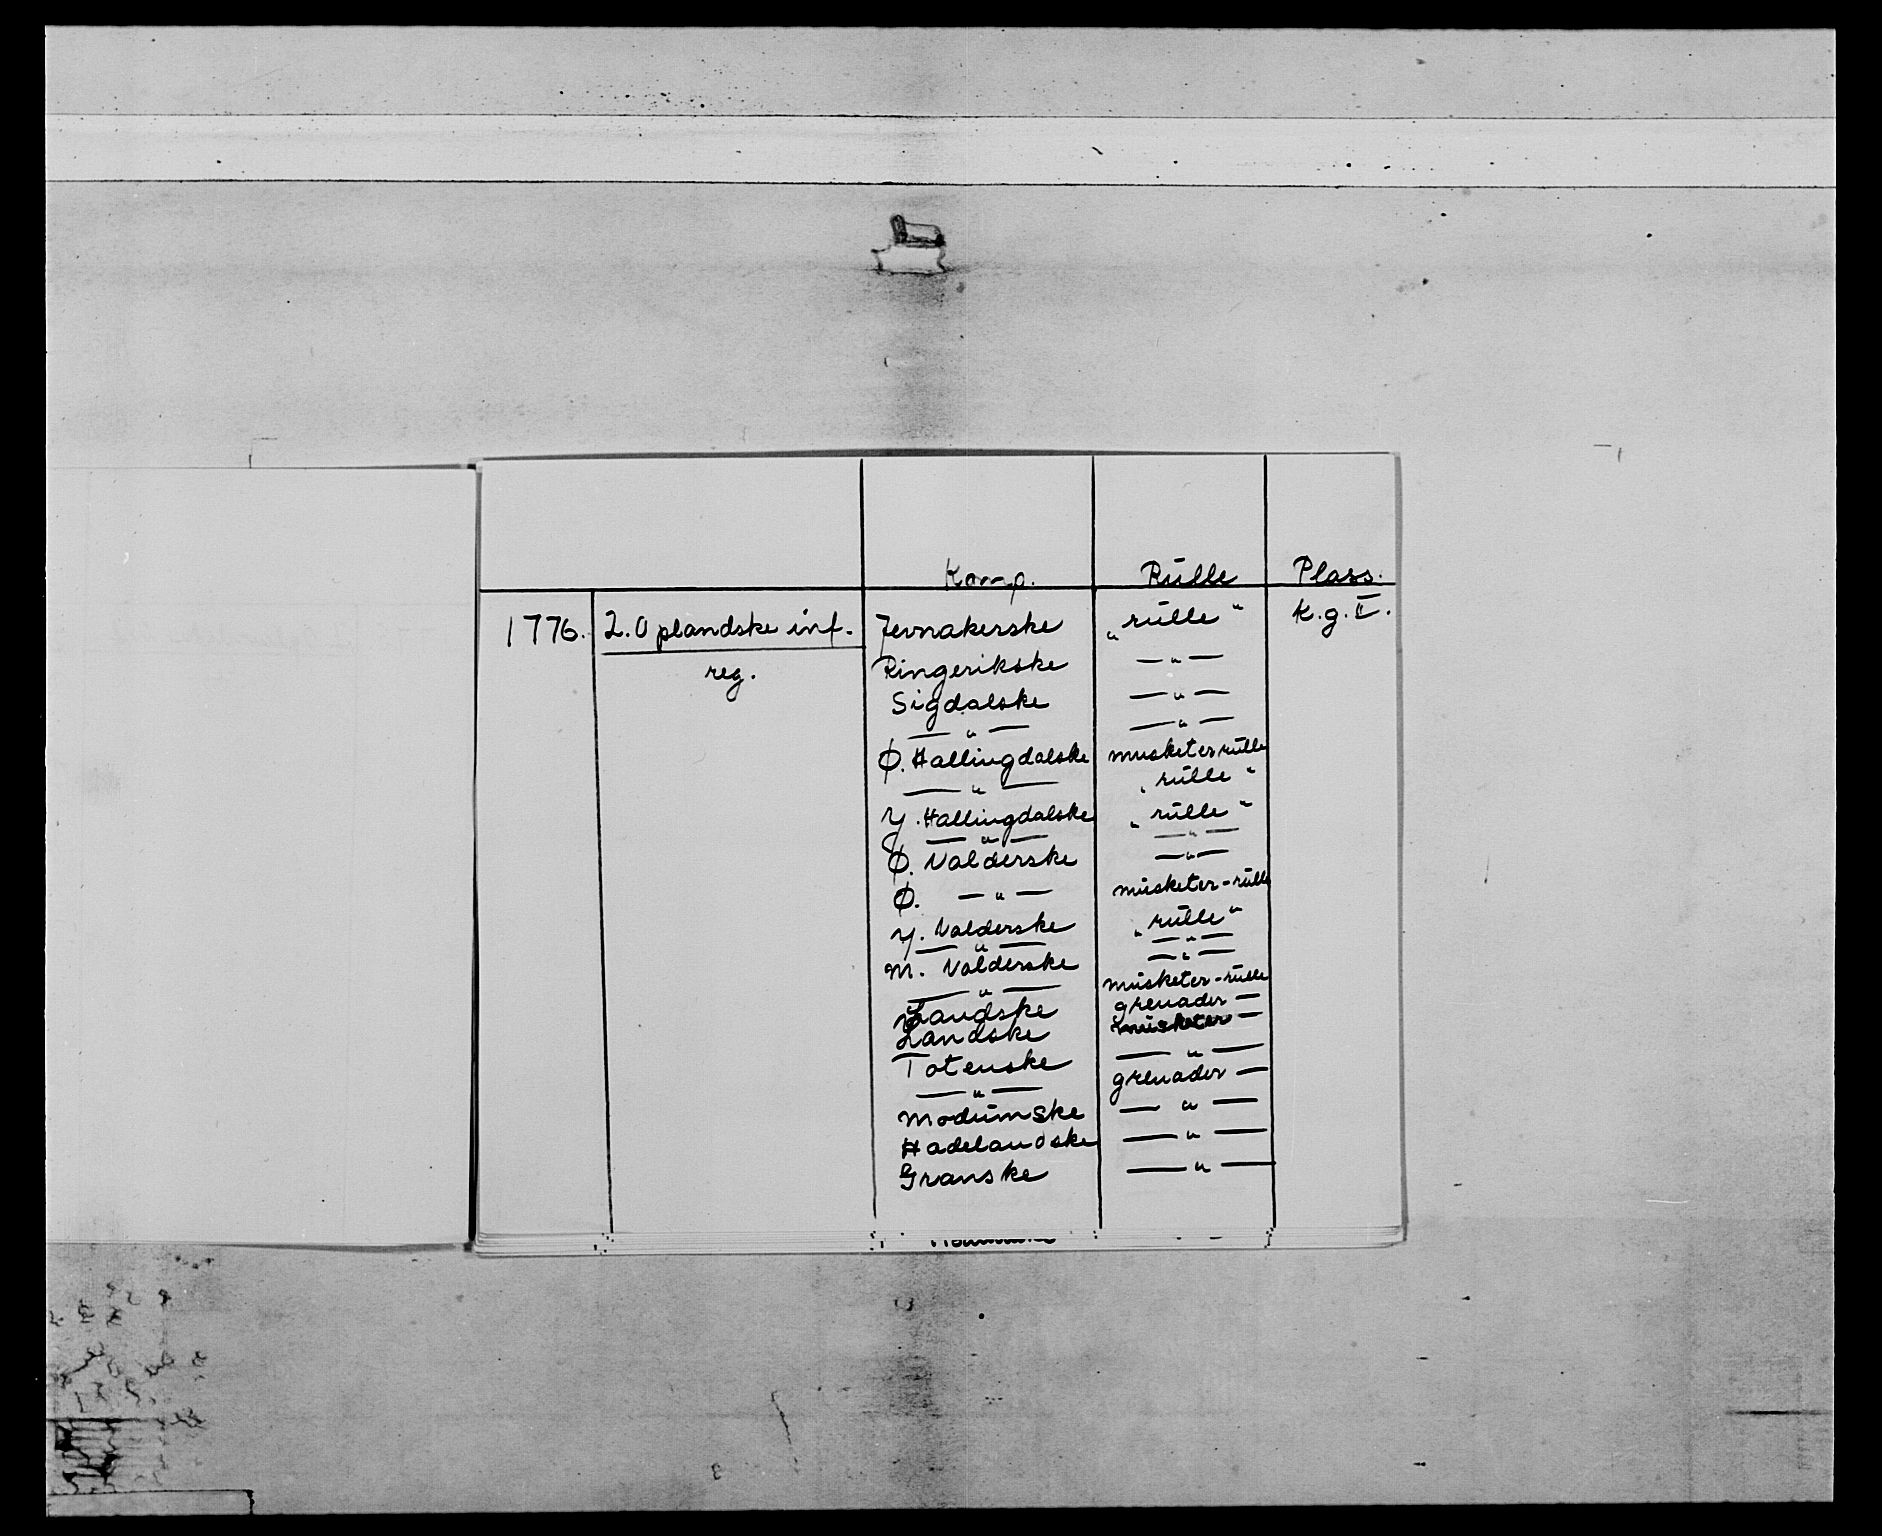 Komp. Rülle Plass.
1776. 2. Oplandske inf. Jevnakerske „rülle“ K.g. II.
reg. Ringerikske — " —
Sigdalske — " —
— " — — " —
Ø. Hallingdalske musketerrülle
— " — „rülle“
Y. Hallingdalske „rülle“
— " — — " —
Ø. Valderske — " —
Ø. — " — müsketer-rülle
Y. Valderske „rülle“
— " — — " —
M. Valderske — " —
— " — müsketer-rülle
Landske grenader —
Landske müsketer —
Totenske — " —
— " — grenader —
Modümske — " —
Hadelandske — " —
Granske — " —